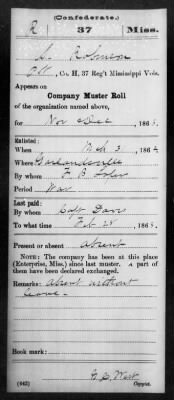 (Confederate.)
R 37 Miss.
Robinson
Co. H, 37 Reg't Mississippi Vols.
Appears on
Company Muster Roll
of the organization named above,
for Nov & Dec, 1863.
Enlisted:
When Mch 3, 1862
Where
By whom F. B.
Period War
Last paid:
By whom Capt
To what time Feb 28, 1863.
Present or absent Absent
NOTE: The company has been at this place
(Enterprise, Miss.) since last muster. A part of
them have been declared exchanged.
Remarks: Absent without
leave.
Book mark:
(642) Copyist.